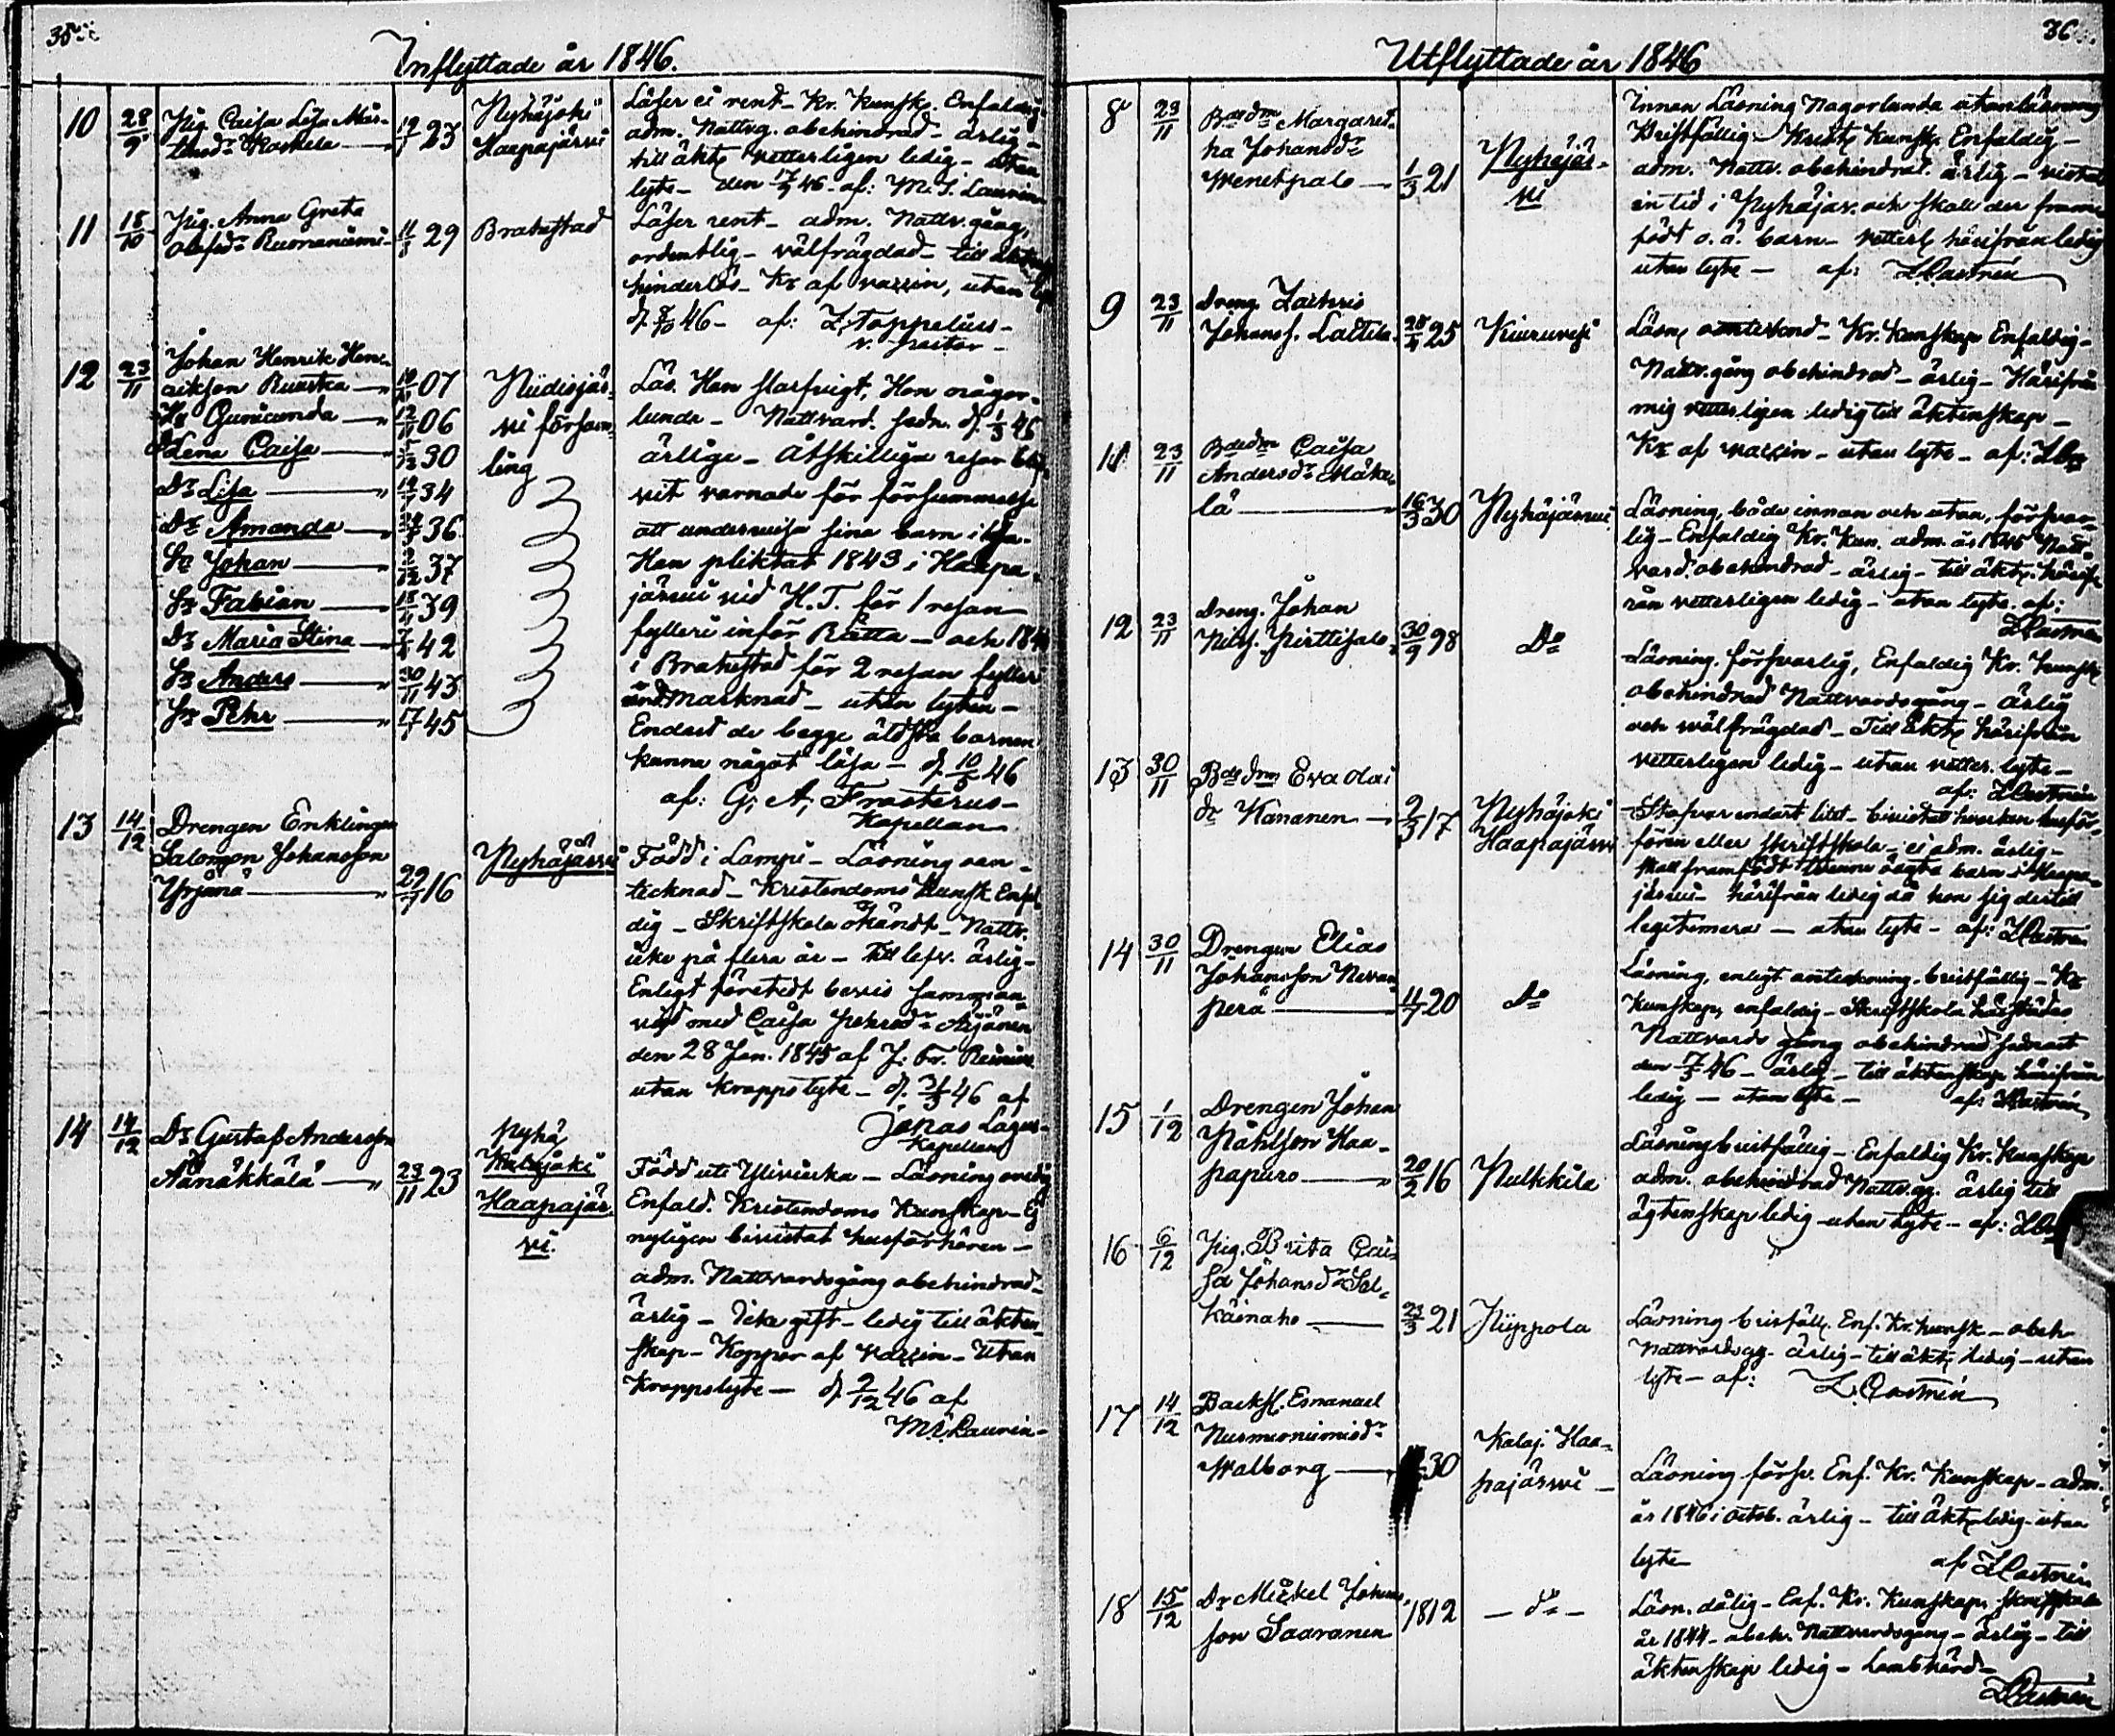 35
Inflyttade år 1846.
10 28/9 Pig. Caisa Lisa Mår-
tensdr Koskela 19/7 23 Pyhäjoki
Haapajärvi
Läser ei rent - Kr. Kunsk. Enfaldig
adm. Nattvg. obehindrad - ärlig -
till äkt. vetterligen ledig - utan
lyte - den 17/9 46 - af: M. I. Laurin
11 18/10 Pig. Anna Greta
Olofsdr Ruonaniemi 29 Brahestad
Läser rent - adm. Nattv. gång,
ordentlig - välfrägdad - till äkt.
hinderlös - Kr af vaccin, utan lyte
d. 8/10 46 - af: Z. Toppelius -
v. pastor -
12 23/11 Johan Henrik Hen-
rikson Ruuska 07 Piidisjär-
Hu Gunicunda 12/11 06 vi försam-
Dr Lena Caisa 30 ling
Dr Lisa 34
Dr Amanda 36
Sr Johan 37
Sr Fabian 39
Dr Maria Stina 42
Sr Anders 30/11 43
Sr Pehr 1/7 45
Läs. Han slarfvigt, Hon någor-
lunda - Nattvard. sedn. d. 1/3 46
ärlige - Åtskilliga resor bli-
vit varnade för försummelse
att undervisa sina barn i läsa.
Han pliktat 1843 i Haapa-
järvi vid H. T. för 1 resan
fylleri inför Rätta - och 184
i Brahestad för 2 resan fylleri
und. Marknad - utan lyten -
Endast de begge äldsta barnen
kunna något läsa - d. 10/5 46
af: G. A. Frosterus -
Kapellan
13 14/12 Drengen Enklingen
Salomon Johansson
Yrjänä 29/7 16 Pyhäjärvi
Född i Lampi - Läsning oan-
tecknad - Kristendoms Kunsk. Enfal
dig - Skriftskola okändt - Nattv.
icke på flera år - Till lefv. ärlig -
Enligt företedt bevis samman-
vigd med Caisa Pehrsdr Arjänen
den 28 Jan. 1845 af J. Fr.
utan kroppslyte - d. 3/3 46 af
Jonas Lagus -
Kapellan
14 14/12 Dr Gustaf Andersson
Äänäkkälä 23/11 23 Pyhä
Kalajoki
Haapajär-
vi.
Född uti Ylivieska - Läsning ovedig
Enfald. Kristendoms Kunskap - Ej
nyligen bivistat husförhören -
adm. Nattvardsgång obehindrad -
ärlig - Icke gift - ledig till äkten-
skap - Koppor af Vaccin - Utan
kroppslyte - d. 2/12 46 af
M. I. Laurin -
36
Utflyttade år 1846
8 23/11 Bdedm Margaret-
ha Johansdr
Wenetpalo 1/3 21 Pyhäjär-
vi
Innan Läsning Någorlunda utanläsning
Bristfällig - Krist. Kunsk. Enfaldig -
adm. Nattv. obehindrat. ärlig - vistat
en tid i Pyhäjär. och skall der fram
födt o. ä. barn - vetterl. härifrån ledig
utan lyte - af: Z. Castrén
9 23/11 Dreng. Zachris
Johans. Laitila 25 Kiuruvesi
Läsn. antecknad - Kr. Kunskap Enfaldig -
Nattv. gång obehindrad - ärlig - Härifrån
mig vetterligen ledig till äktenskap -
Kr af vaccin - utan lyte - af: Z. C
11 23/11 Bdedm Caisa
Andersdr Mäke-
lä 16/3 30 Pyhäjärvi
Läsning, både innan och utan, försvar-
lig - Enfaldig Kr. Kun. adm. år 1846 Natt-
vard. obehindrad - ärlig - till äkt. härif-
rån vetterligen ledig - utan lyte. af:
Z. Castrén
12 23/11 Dreng. Johan
Nils. Pirttisalo 30/9 98 Do
Läsning. försvarlig, Enfaldig Kr. kunsk
obehindrad Nattvardsgång - ärlig
och wälfrägdad - Till äkt. härifrån
vetterligen ledig - utan vetter. lyte -
af: Z. Castrén
13 30/11 Bdedm Eva
dr Kananen 2/3 17 Pyhäjoki
Haapajärvi
Stafvar endast litet - bivistat hvarken husför-
hören eller skriftskola - ei adm. ärlig -
skall framfödt tvenne oägta barn i Haapa-
järvi - härifrån ledig då hon sig dertill
legitimera - utan lyte - af: Z. Castrén
14 30/11 Drengen Elias
Johansson Nevan-
perä 20 do
Läsning, enligt anteckning. bristfällig - Kr
kunskap, enfaldig - Skriftskola härstädes
Nattvards gång obehindrad sednast
den 7/3 46 - ärlig - till äktenskap härifrån
ledig - utan lyte - af: Z. Castrén
15 1/12 Drengen Johan
Påhlson Haa-
papuro 20/2 16 Pulkkila
Läsning bristfällig - Enfaldig Kr. Kunskap
adm. obehindrad Nattv. gg. ärlig till
ägtenskap ledig - utan lyte - af: Z. C
16 6/12 Pig. Brita Cai-
sa Johansdr Sel-
käinaho 23/3 21 Piippola
Läsning bristfäll. Enf. Kr. kunsk - obeh
Nattvardsgg. ärlig - till äkt. ledig - utan
lyte - af: Z. Castrén
17 14/12 Backst. Emanuel
Nurmeniemi dr
Walborg 30 Kalaj. Haa-
pajärwi -
Läsning försv. Enf. Kr. Kunskap - adm.
år 1846 i octob. ärlig - till äkt. ledig - utan
lyte af Z. Castrén
18 15/12 Dr Mickel Johans-
son Saaranen 1812 - do -
Läsn. dålig - Enf. Kr. Kunskap, skriftskola
år 1844 - obeh. Nattvardsgång - ärlig - till
äktenskap ledig - Lambhärd -
Z. Castrén